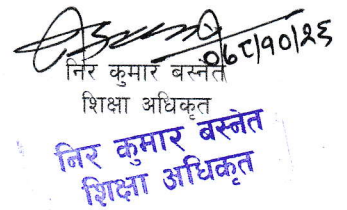 ०६८/१०/२६
निर कुमार बस्नेत
शिक्षा अधिकृत
निर कुमार बस्नेत
शिक्षा अधिकृत